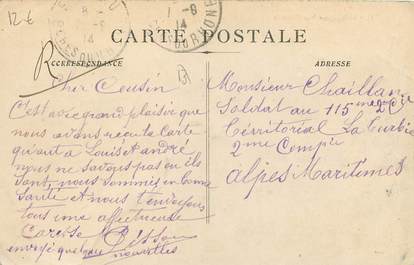 12 €
8
14
1-8
14
CARTE POSTALE
CORRESPONDANCE
R
Cher Cousin
C'est avec grand plaisir que
nous avons recu ta Carte
quant a Louis et andré
nous ne savons pas ou ils
sont, nous sommes en bonne
santé et nous t'envoyons
tous une affectueuse
Caresse
envoye quelques
nouvelles
Monsieur Chaillan
Soldat au 115me
Térritorial La Turbie
2me Compie
Alpes Maritimes